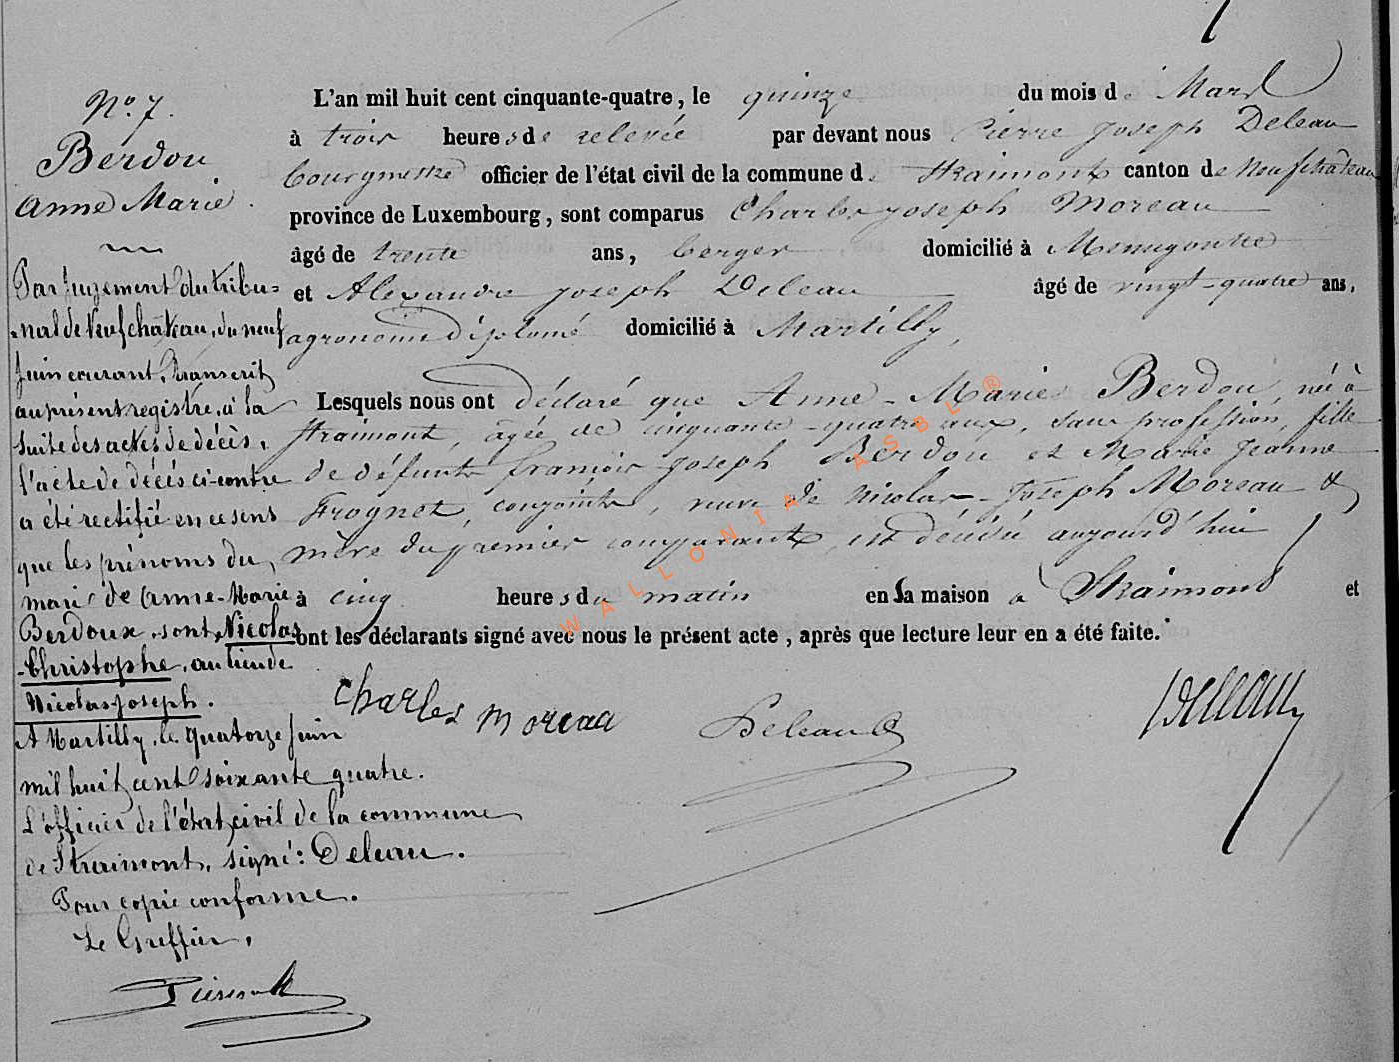 N.o 7.
Berdou
Anne Marie.
Par Jugement du tribu=
=nal de Neufchâteau, du neuf
Juin courant, transcrit
au présent registre, à la
suite des actes de décès,
l'acte de décès ci-contre
a été rectifié en ce sens
que les prénoms du
mari de Anne-Marie
Berdoux, sont, Nicolas
-Christophe, au lieu de
Nicolas-Joseph.
A Martilly, le quatorze Juin
mil huit cent soixante quatre.
L'officier de l'état civil de la commune
de Straimont, signé: Deleau.
Pour copie conforme.
Le Greffier,
L'an mil huit cent cinquante-quatre, le quinze du mois de Mars
à trois heures de relevée par devant nous Pierre Joseph Deleau
bourgmestre officier de l'état civil de la commune de Straimont canton de Neufchâteau
province de Luxembourg, sont comparus Charles Joseph Moreau
âgé de trente ans, berger domicilié à Menugoutte
et Alexandre Joseph Deleau âgé de vingt-quatre ans,
agronome diplomé domicilié à Martilly,
Lesquels nous ont déclaré que Anne-Marie Berdou, née à
Straimont, âgée de cinquante-quatre ans, sans profession, fille
de défunts françois Joseph Berdou et Marie Jeanne
Frognet, conjoints, veuve de Nicolas-Joseph Moreau &
mère du premier comparant, est décédée aujourd'hui
à cinq heures du matin en sa maison à Straimont et
ont les déclarants signé avec nous le présent acte, après que lecture leur en a été faite.
Charles Moreau Deleau Deleau
WALLONIA ASBL ®